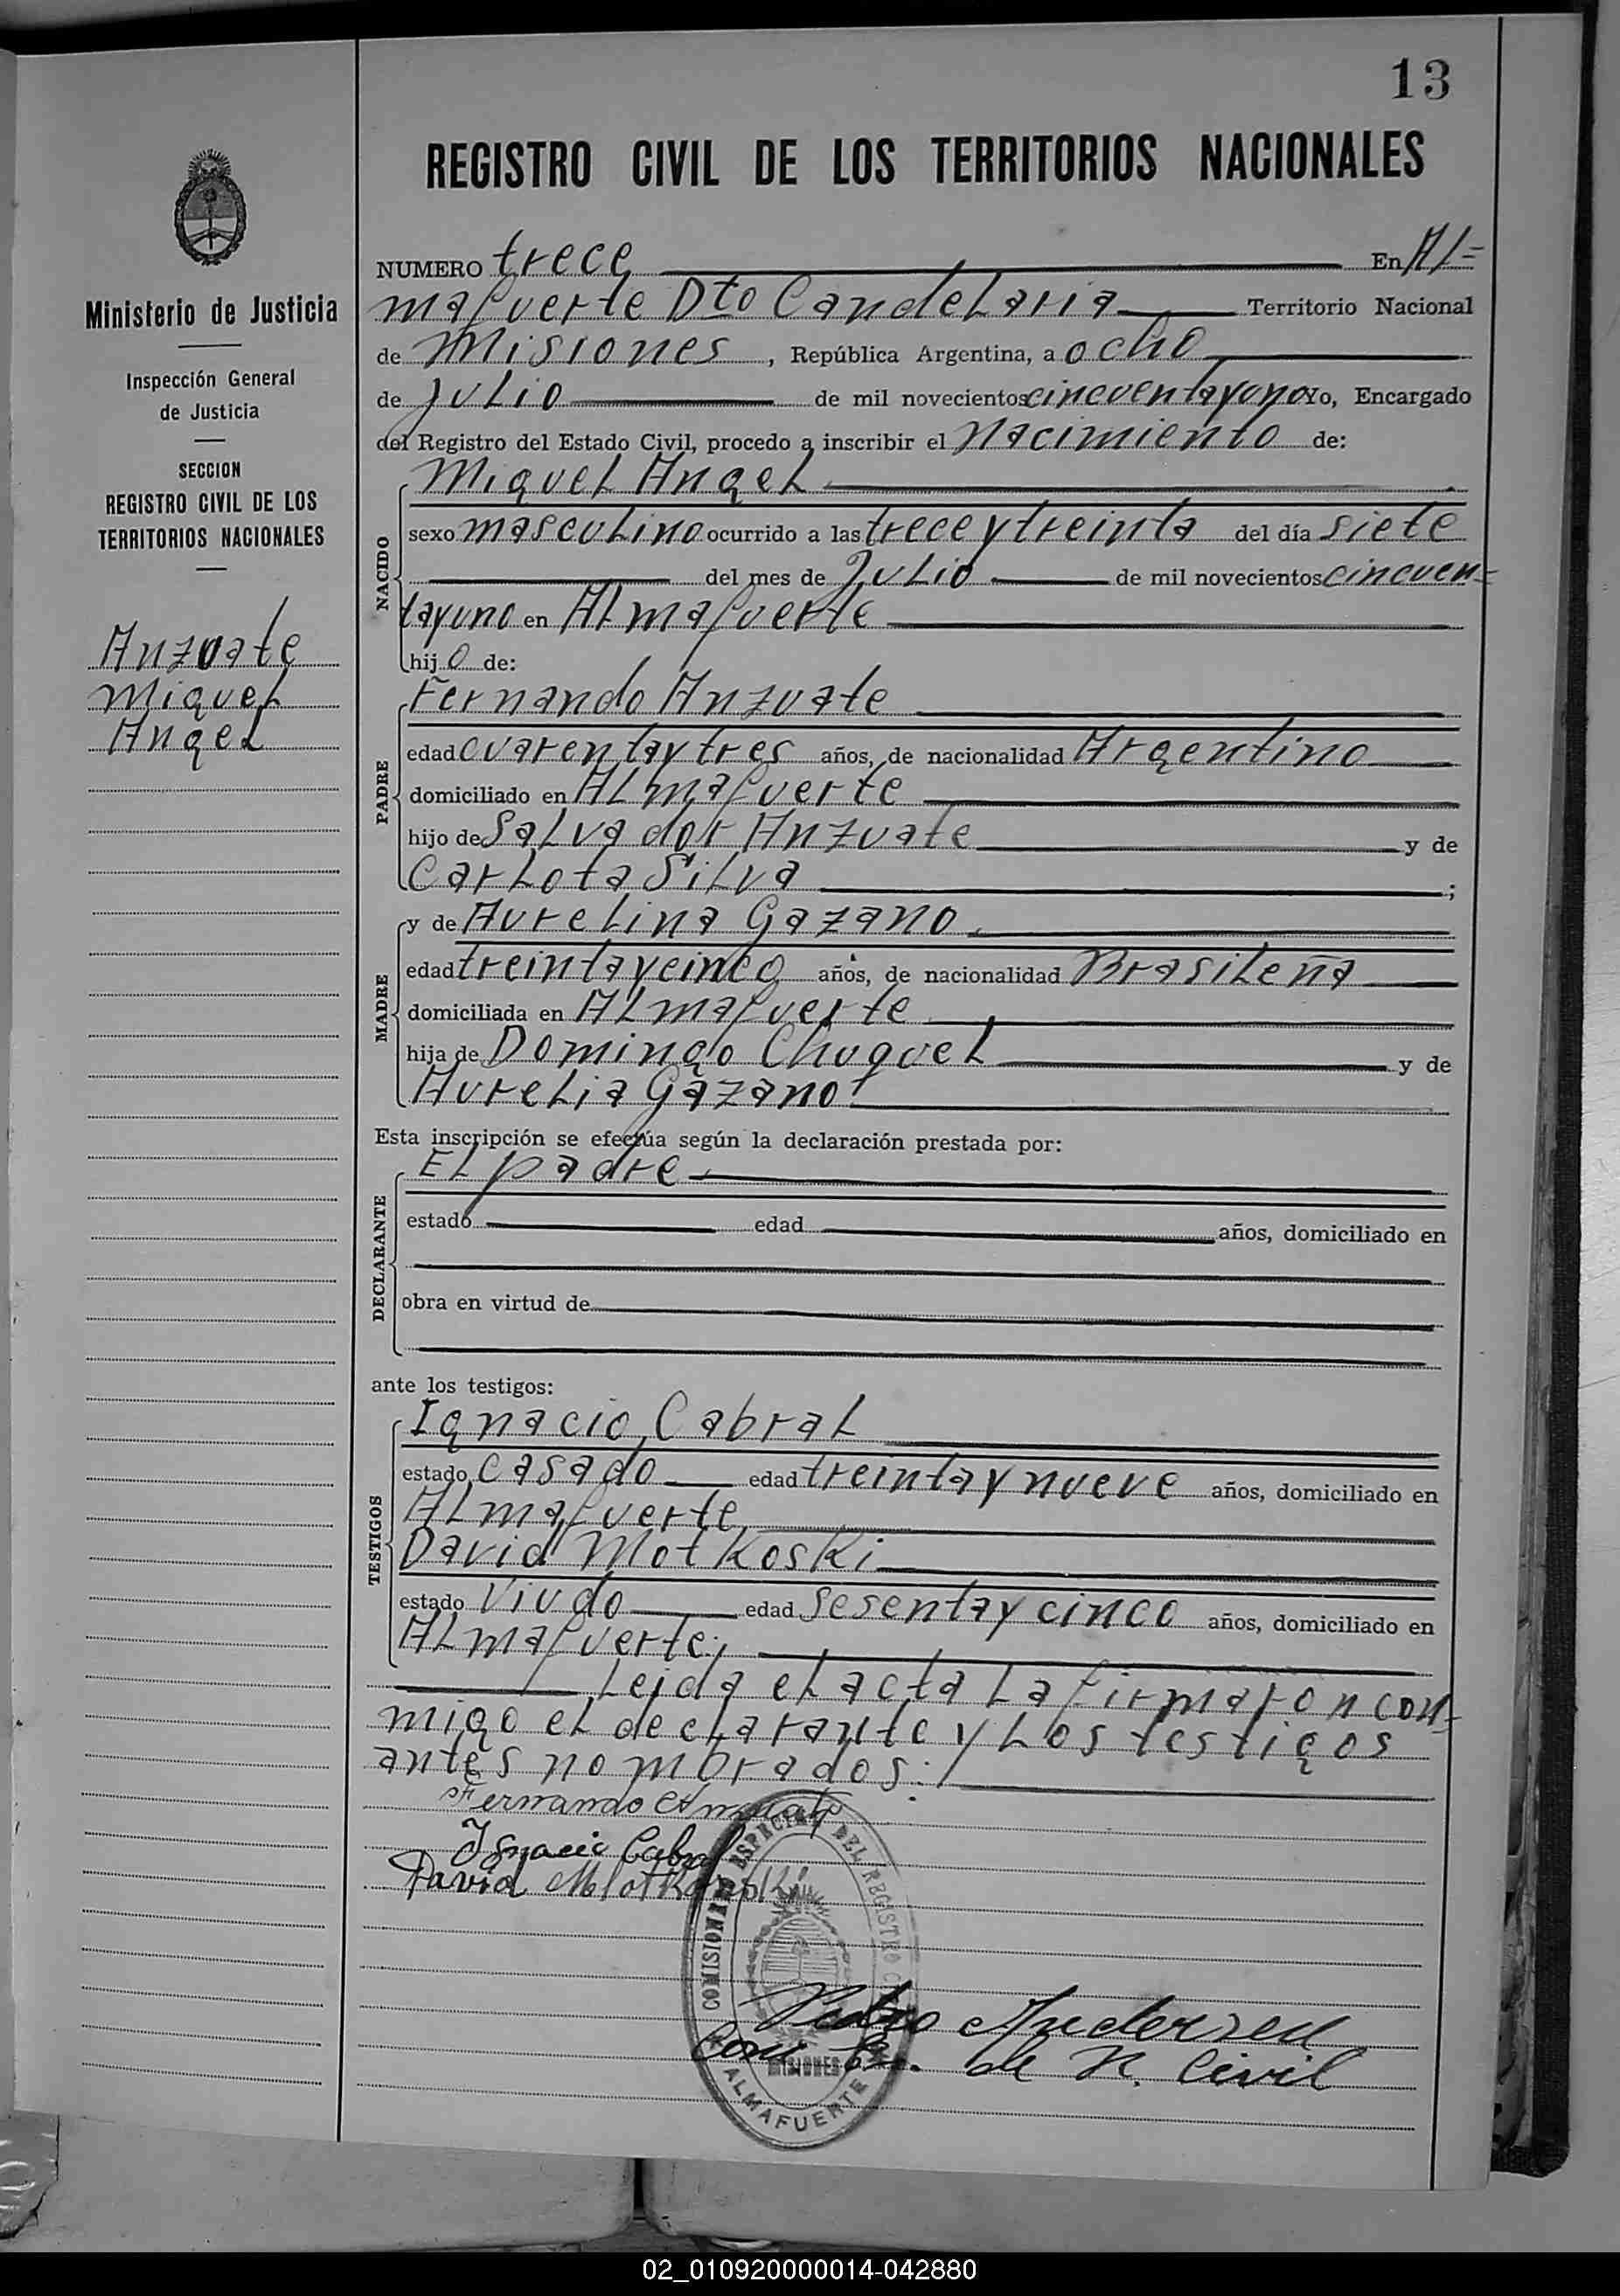 13
REGISTRO CIVIL DE LOS TERRITORIOS NACIONALES
Ministerio de Justicia
Inspección General
de Justicia
SECCION
REGISTRO CIVIL DE LOS
TERRITORIOS NACIONALES
Anzuate
Miguel
Angel
NUMERO trece En Al=
mafuerte Dto Candelaria Territorio Nacional
de Misiones, República Argentina, a ocho
de Julio de mil novecientos cincuentayuno Yo, Encargado
del Registro del Estado Civil, procedo a inscribir el Nacimiento de:
NACIDO
Miguel Angel
sexo masculino ocurrido a las trece y treinta del día siete
del mes de Julio de mil novecientos cincuen=
tayuno en Almafuerte
hijo de:
PADRE
Fernando Anzuate
edad cuarentaytres años, de nacionalidad Argentino
domiciliado en Almafuerte
hijo de Salvador Anzuate y de
Carlota Silva ;
MADRE
y de Aurelina Gazano
edad treintaycinco años, de nacionalidad Brasileña
domiciliada en Almafuerte
hija de Domingo Chuquel y de
Aurelia Gazano
Esta inscripción se efectúa según la declaración prestada por:
DECLARANTE
El padre
estado edad años, domiciliado en
obra en virtud de
ante los testigos:
TESTIGOS
Ignacio Cabral
estado casado edad treintaynueve años, domiciliado en
Almafuerte
David Motkoski
estado Viudo edad sesentay cinco años, domiciliado en
Almafuerte;
Leida el acta la firmaron con-
migo el declarante y los testigos
antes nombrados:/
Fernando Anzuate
Ignacio Cabral
David Motkoski
COMISIONADO ESPECIAL DEL REGISTRO CIVIL
MISIONES
ALMAFUERTE
Pedro Andersen
Com. Es. de R. Civil
02_010920000014-042880